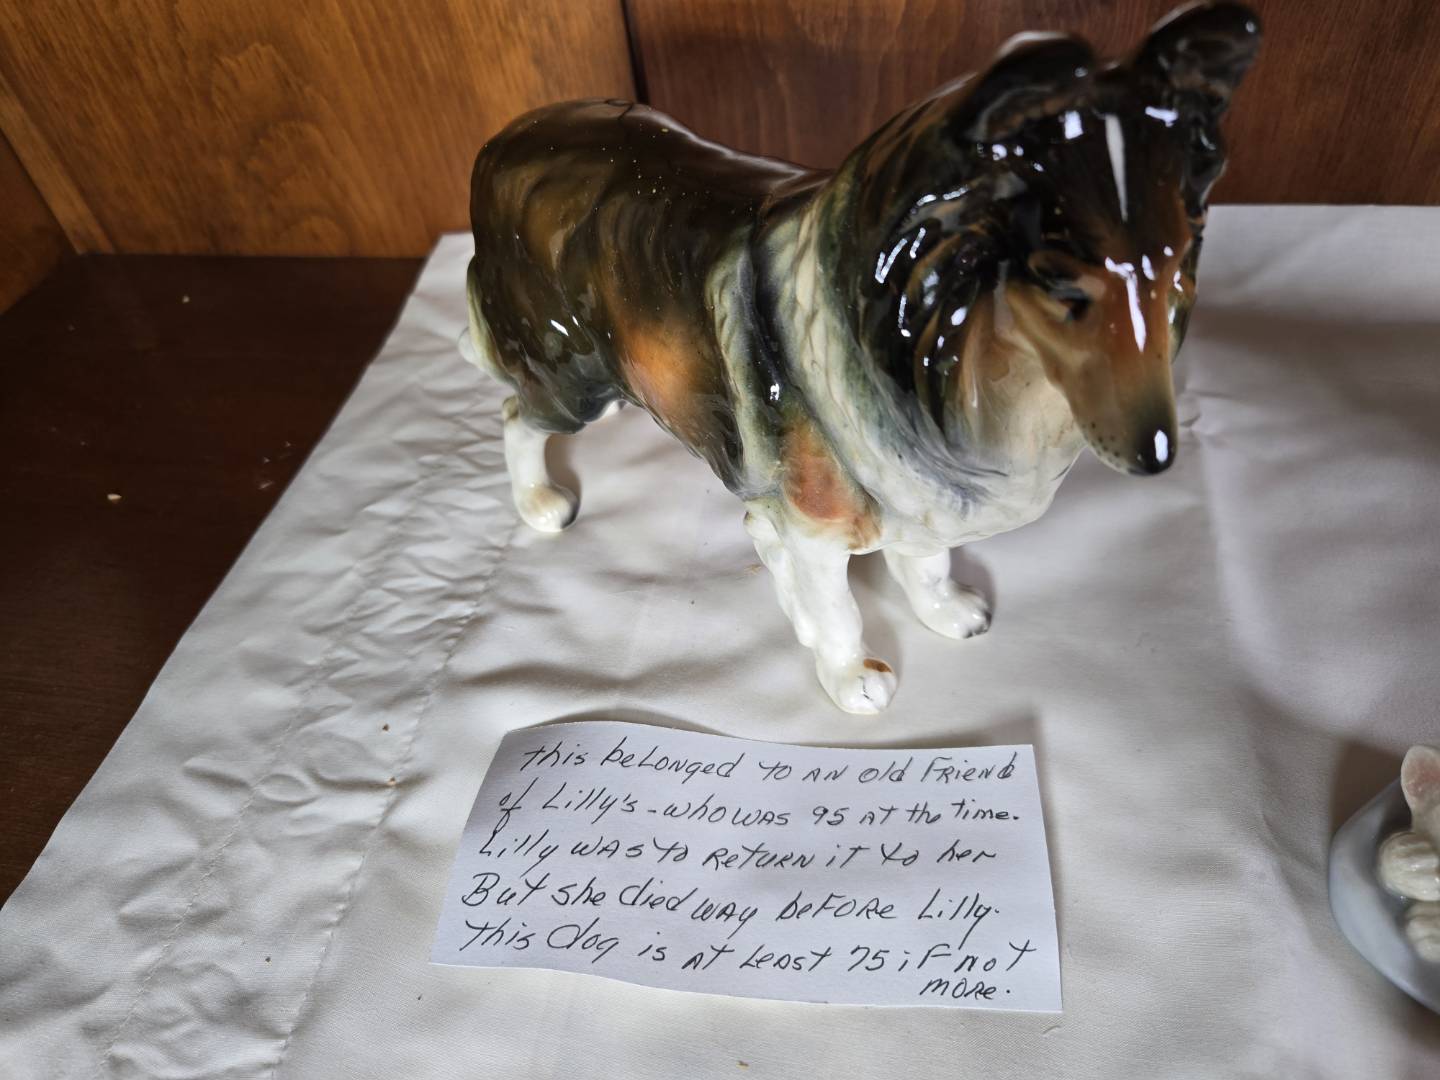 this beLonged to AN old FRieNd
of Lilly's - who WAS 95 AT the time.
Lilly WAS to ReTURN iT to her
BuT she died WAy beFORe Lilly.
this dog is AT LeAsT 75 iF noT
moRe.